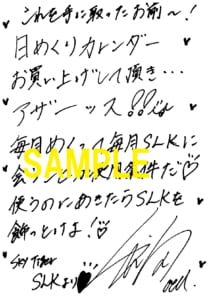 これを手に取ったお前〜!
日めくりカレンダー
お買い上げして頂き…
アザーッス!!
毎月めくって毎月SLKに
SAMPLE
使うのにあきたらSLKを
飾っとけよ!
SKY TOUR
SLKより